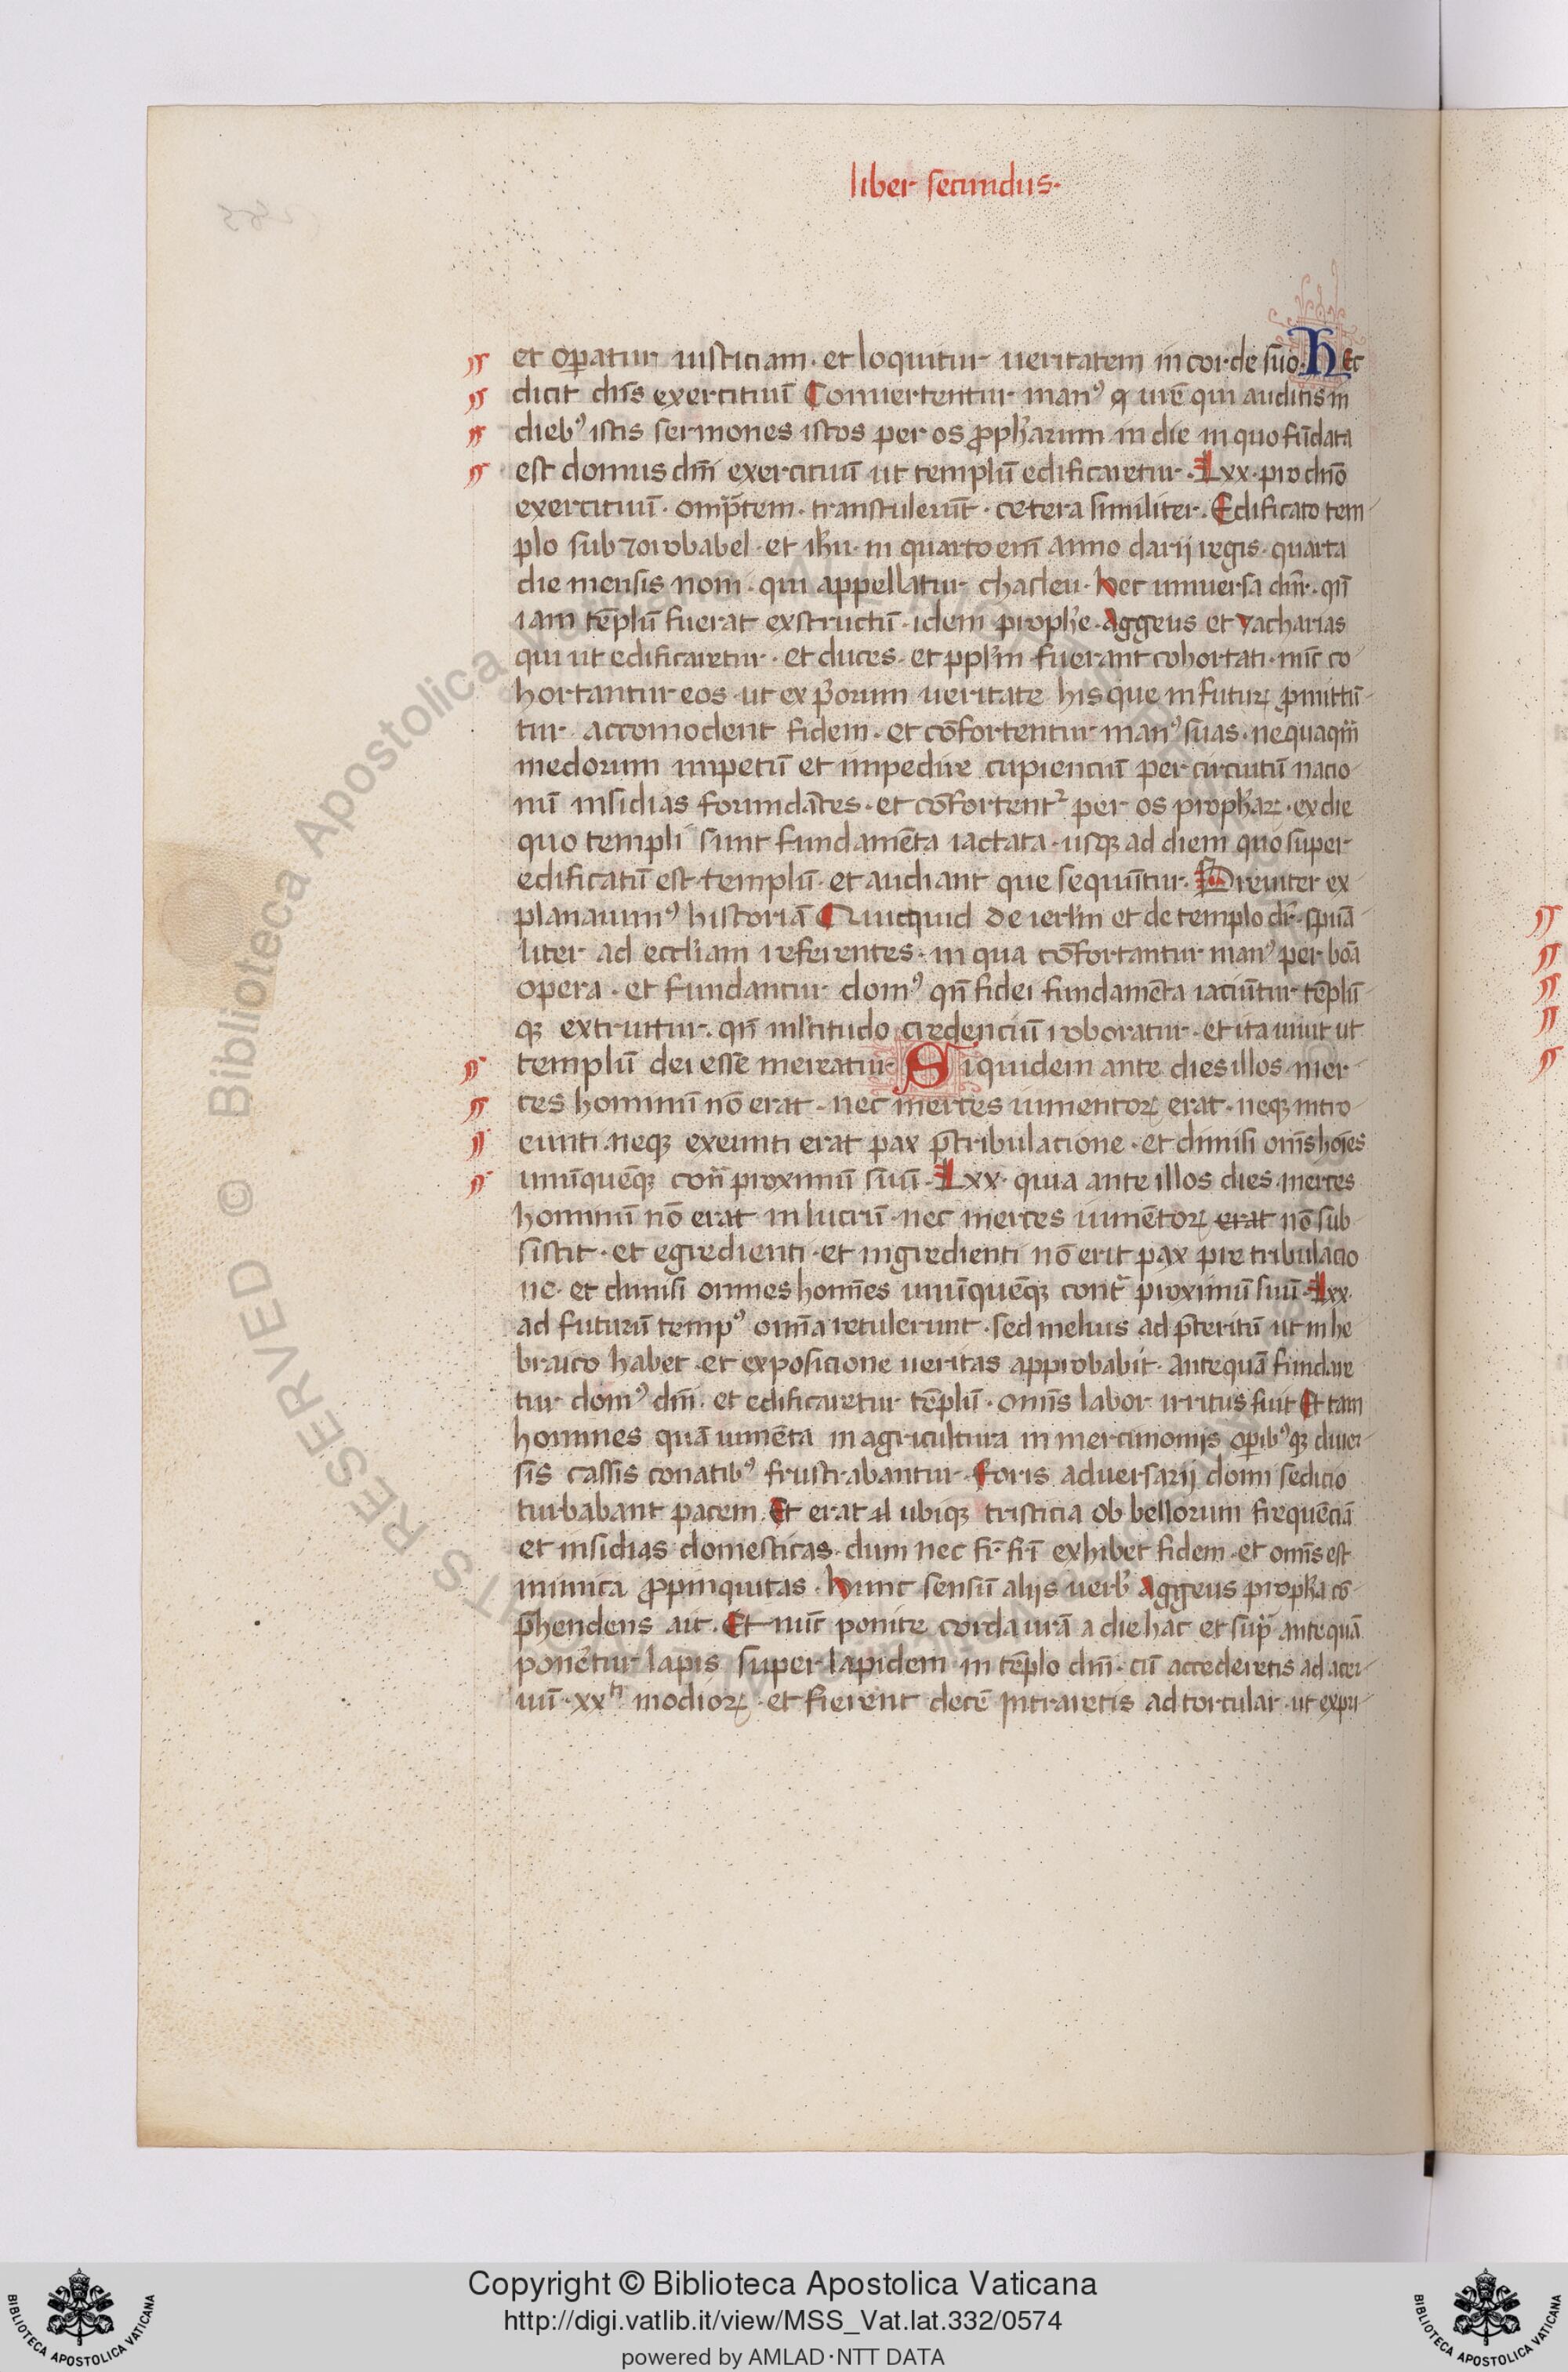 liber secundus·
et oꝑatur iusticiam · et loquitur ueritatem in corde suo · Hec
dicit dn̄s exercituū Conuertentur man⁹ q̲ ur̄e qui auditis in
dieb⁹ istis sermones istos per os ꝓph̄arum in die in quo fūdata
est domus dn̄i exercituū ut templū edificaretur · Lxx · pro dn̄o
exercituū · omp̄tem · transtulerūt · cetera similiter. Edificato tem
plo sub zorobabel · et ih̄u · in quarto eni᷒ anno darij regis · quarta
die mensis noni · qui appellatur chasleu · hec uniuersa dn̄r · qn̄
iam tēplū fuerat exstructū · idem prophe · Aggeus et zacharias
qui ut edificaretur · et duces · et ppl̄m fuerant cohortati · nūc co
hortantur eos · ut ex p̄orum ueritate hisque in futuꝝ ꝓmittū
tur accomodent fidem · et cōfortentur man⁹ suas · nequaqm̄
medorum impetū et impedire cupienciū per circuitū nacio
nū insidias formidātes · et cōfortentʳ per os prophaꝝ · ex die
quo templi sunt fundamēta iactata · usqꝫ ad diem quo super
edificatū est templū · et audiant que sequūtur. Breuiter ex
planauim⁹ historiā Quicquid de ierl̄m et de templo dr̄ · sp̄ua
liter ad eccl̄iam referentes · in qua cōfortantur man⁹ per bōa
opera · et fundantur dom⁹ qn̄ fidei fundamēta iaciūtur tēplū
qꝫ extruitur · qn̄ ml̄titudo credenciū roboratur · et ita uiuit ut
templū dei esse mereatur · Siquidem ante dies illos mer
ces hominū nō erat · nec merces iumentoꝝ erat · neqꝫ intro
eunti neqꝫ exeunti erat pax p̄ tribulacione · et dimisi om̄s hoīes
unūquēqꝫ contª proximū suū · Lxx · quia ante illos dies merces
hominū nō erat in lucrū · nec merces iumētoꝝ erat nō sub
sistit · et egredienti · et ingredienti nō erit pax pre tribulacio
ne · et dimisi omnes homīes unūquēqꝫ contª proximū suū · Lxx ·
ad futurū temp⁹ omīa retulerunt · sed melius ad p̄teritū ut in he
braico habet · et exposicione ueritas approbabit · Antequā fundare
tur dom⁹ dn̄i · et edificaretur tēplū · omīs labor irritus fuit Et tam
homines quā iumēta in agricultura in mercimonijs oꝑib⁹qꝫ diuer
sis cassis conatib⁹ frustrabantur · Foris aduersarij domi sedicio
turbabant pacem · Et erat il ubiqꝫ tristicia ob bellorum frequēciā
et insidias domesticas · dum nec fr̄ · fr̄i exhibet fidem · et omīs est
inimica ꝓpinquitas · hunc sensū alijs uerb Aggeus propha cō
p̄hendens ait · Et nūc ponite corda ur̄a a die hac et supª antequā
ponetur lapis super lapidem in tēplo dn̄i · cū accederetis ad acer
uū · xxᵗⁱ modioꝝ · et fierent decē intraretis ad torcular · ut expri
Copyright © Biblioteca Apostolica Vaticana
http://digi.vatlib.it/view/MSS_Vat.lat.332/0574
powered by AMLAD·NTT DATA